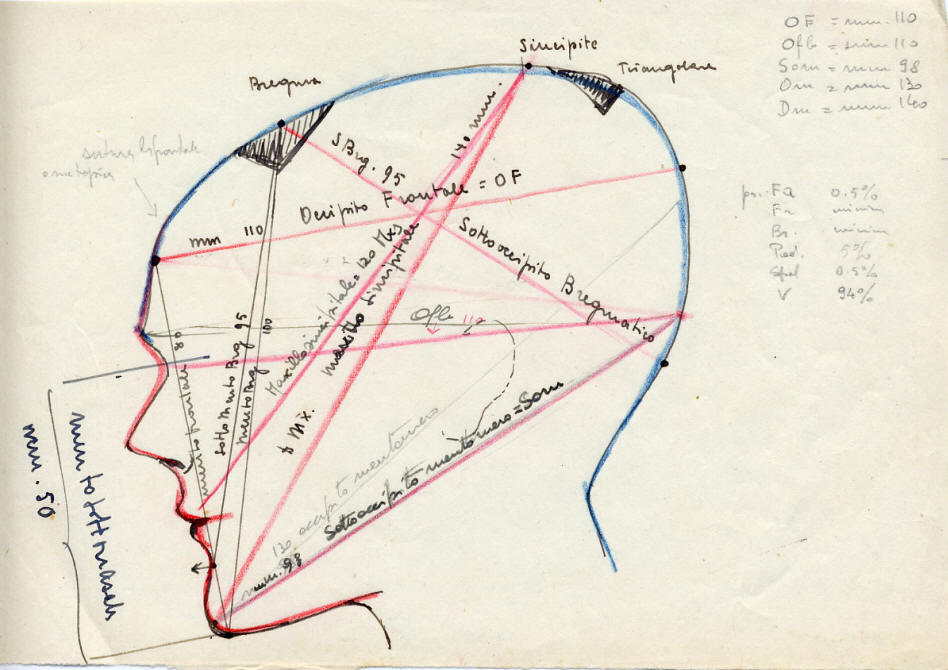 OF = mm. 110
Ofb = mm 110
Som = mm 98
Om = mm 130
Dm = mm 140
Sincipite
Triangolare
Bregma
sutura
o metopica
SBrg. 95
140 mm.
Occipito Frontale = OF
mm 110
Sottooccipito Bregmatico
Mascellosincipitale = 120 Mxs
Sincipitale
Ofb 110
pr. Fa 0.5%
Fr. minim
Br. minim
Pod. 5%
Spal 0.5%
V 94%
80
mento frontale
Sotto Mento Brg 95
Mento Brg 100
Mx.
130 occipito mentoniero
Sottooccipito mentoniero = Som
mm. 98
mm. 50